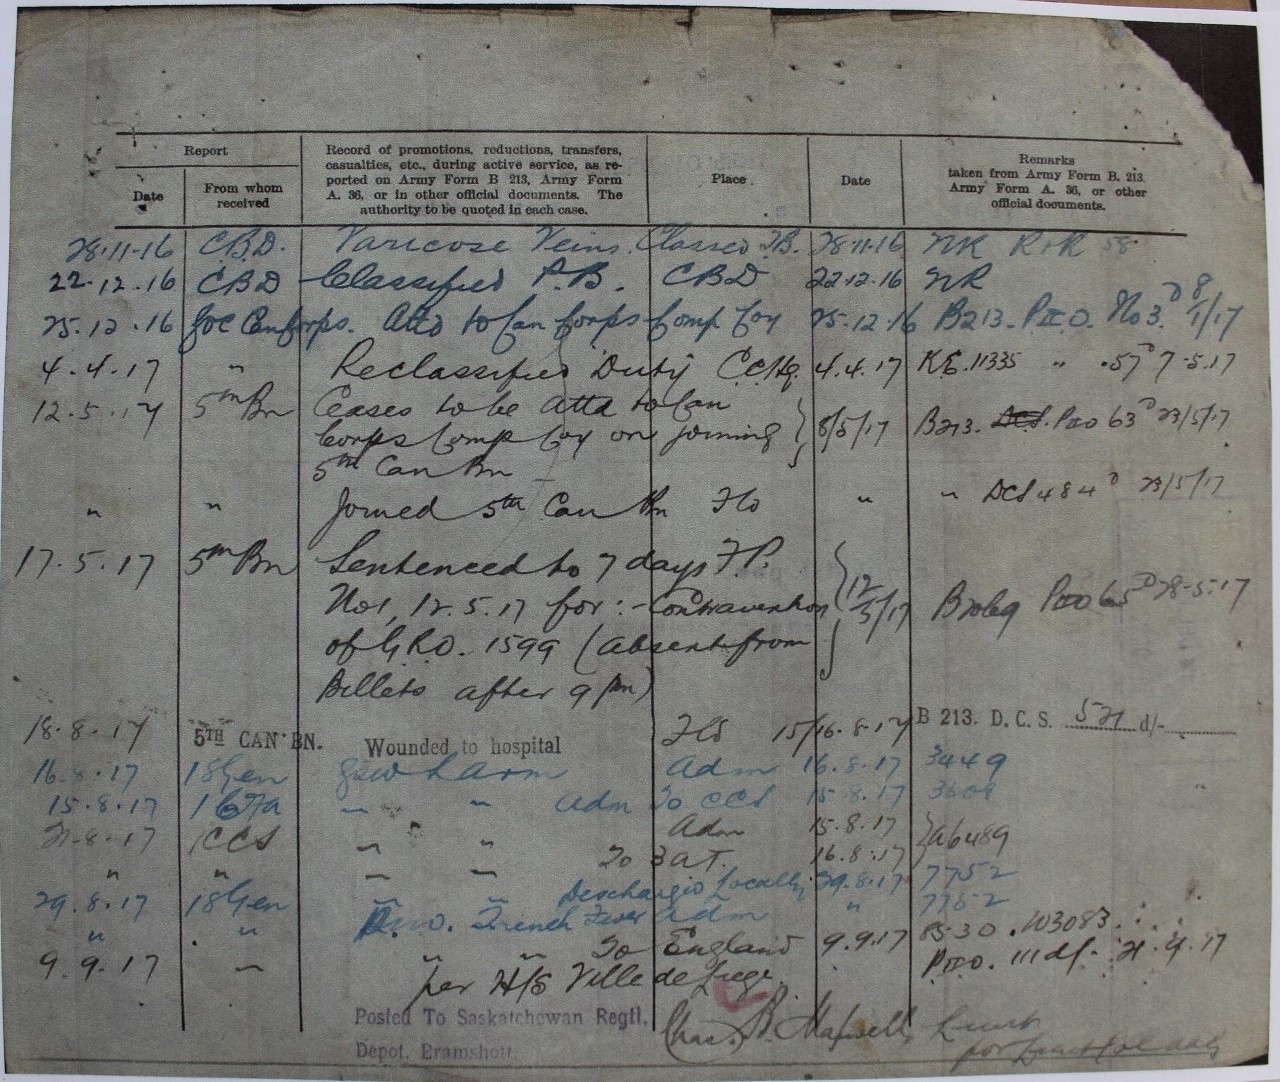 Report
Record of promotions, reductions, transfers,
casualties, etc., during active service, as re-
ported on Army Form B 213, Army Form
A. 36, or in other official documents. The
authority to be quoted in each case.
Place
Date
Remarks
taken from Army Form B. 213,
Army Form A. 36, or other
official documents.
Date
From whom
received
28.11.16 C.B.D. Varicose Veins. Classed 28.11.16 NR
22.12.16 CBD Classified P.B. CBD 22.12.16 NR
25.12.16 Can Corps. Attd to Can Corps Comp Coy 25.12.16 B213. PII O. No 3 D 8/1/17
4.4.17 " Reclassified Duty 4.4.17 11335 " 57 D 7.5.17
12.5.17 5th Bn Ceases to be attd to Can
Corps Comp Coy on joining 8/5/17 B213. DCS. PII O 63 D 23/5/17
5th Can Bn
" " Joined 5th Can Bn Fld " " DCS 484 D 23/5/17
17.5.17 5th Bn Sentenced to 7 days F.P.
No 1, 12.5.17 for :- Contravention 12/5/17 28.5.17
of G.R.O. 1599 (absent from
Billets after 9 pm)
18.8.17 5TH CAN BN. Wounded to hospital Fld 15/16.8.17 B 213. D.C.S. d/-
16.8.17 18 Gen gsw L Arm Adm 16.8.17 3449
15.8.17 " Adm To CCS 15.8.17
21.8.17 1 CCS " " Adm 15.8.17 A6489
" " " " To 3 A.T. 16.8.17
29.8.17 18 Gen " " Discharged Locally 29.8.17 7752
" " Trench Fever Adm " 7752
9.9.17 " " " To England 9.9.17 8530. W3083
per H/S Ville de Liege
Posted To Saskatchewan Regtl.
Depot. Bramshott.
Chas. B. Maxwell Lieut
for Lieut Col